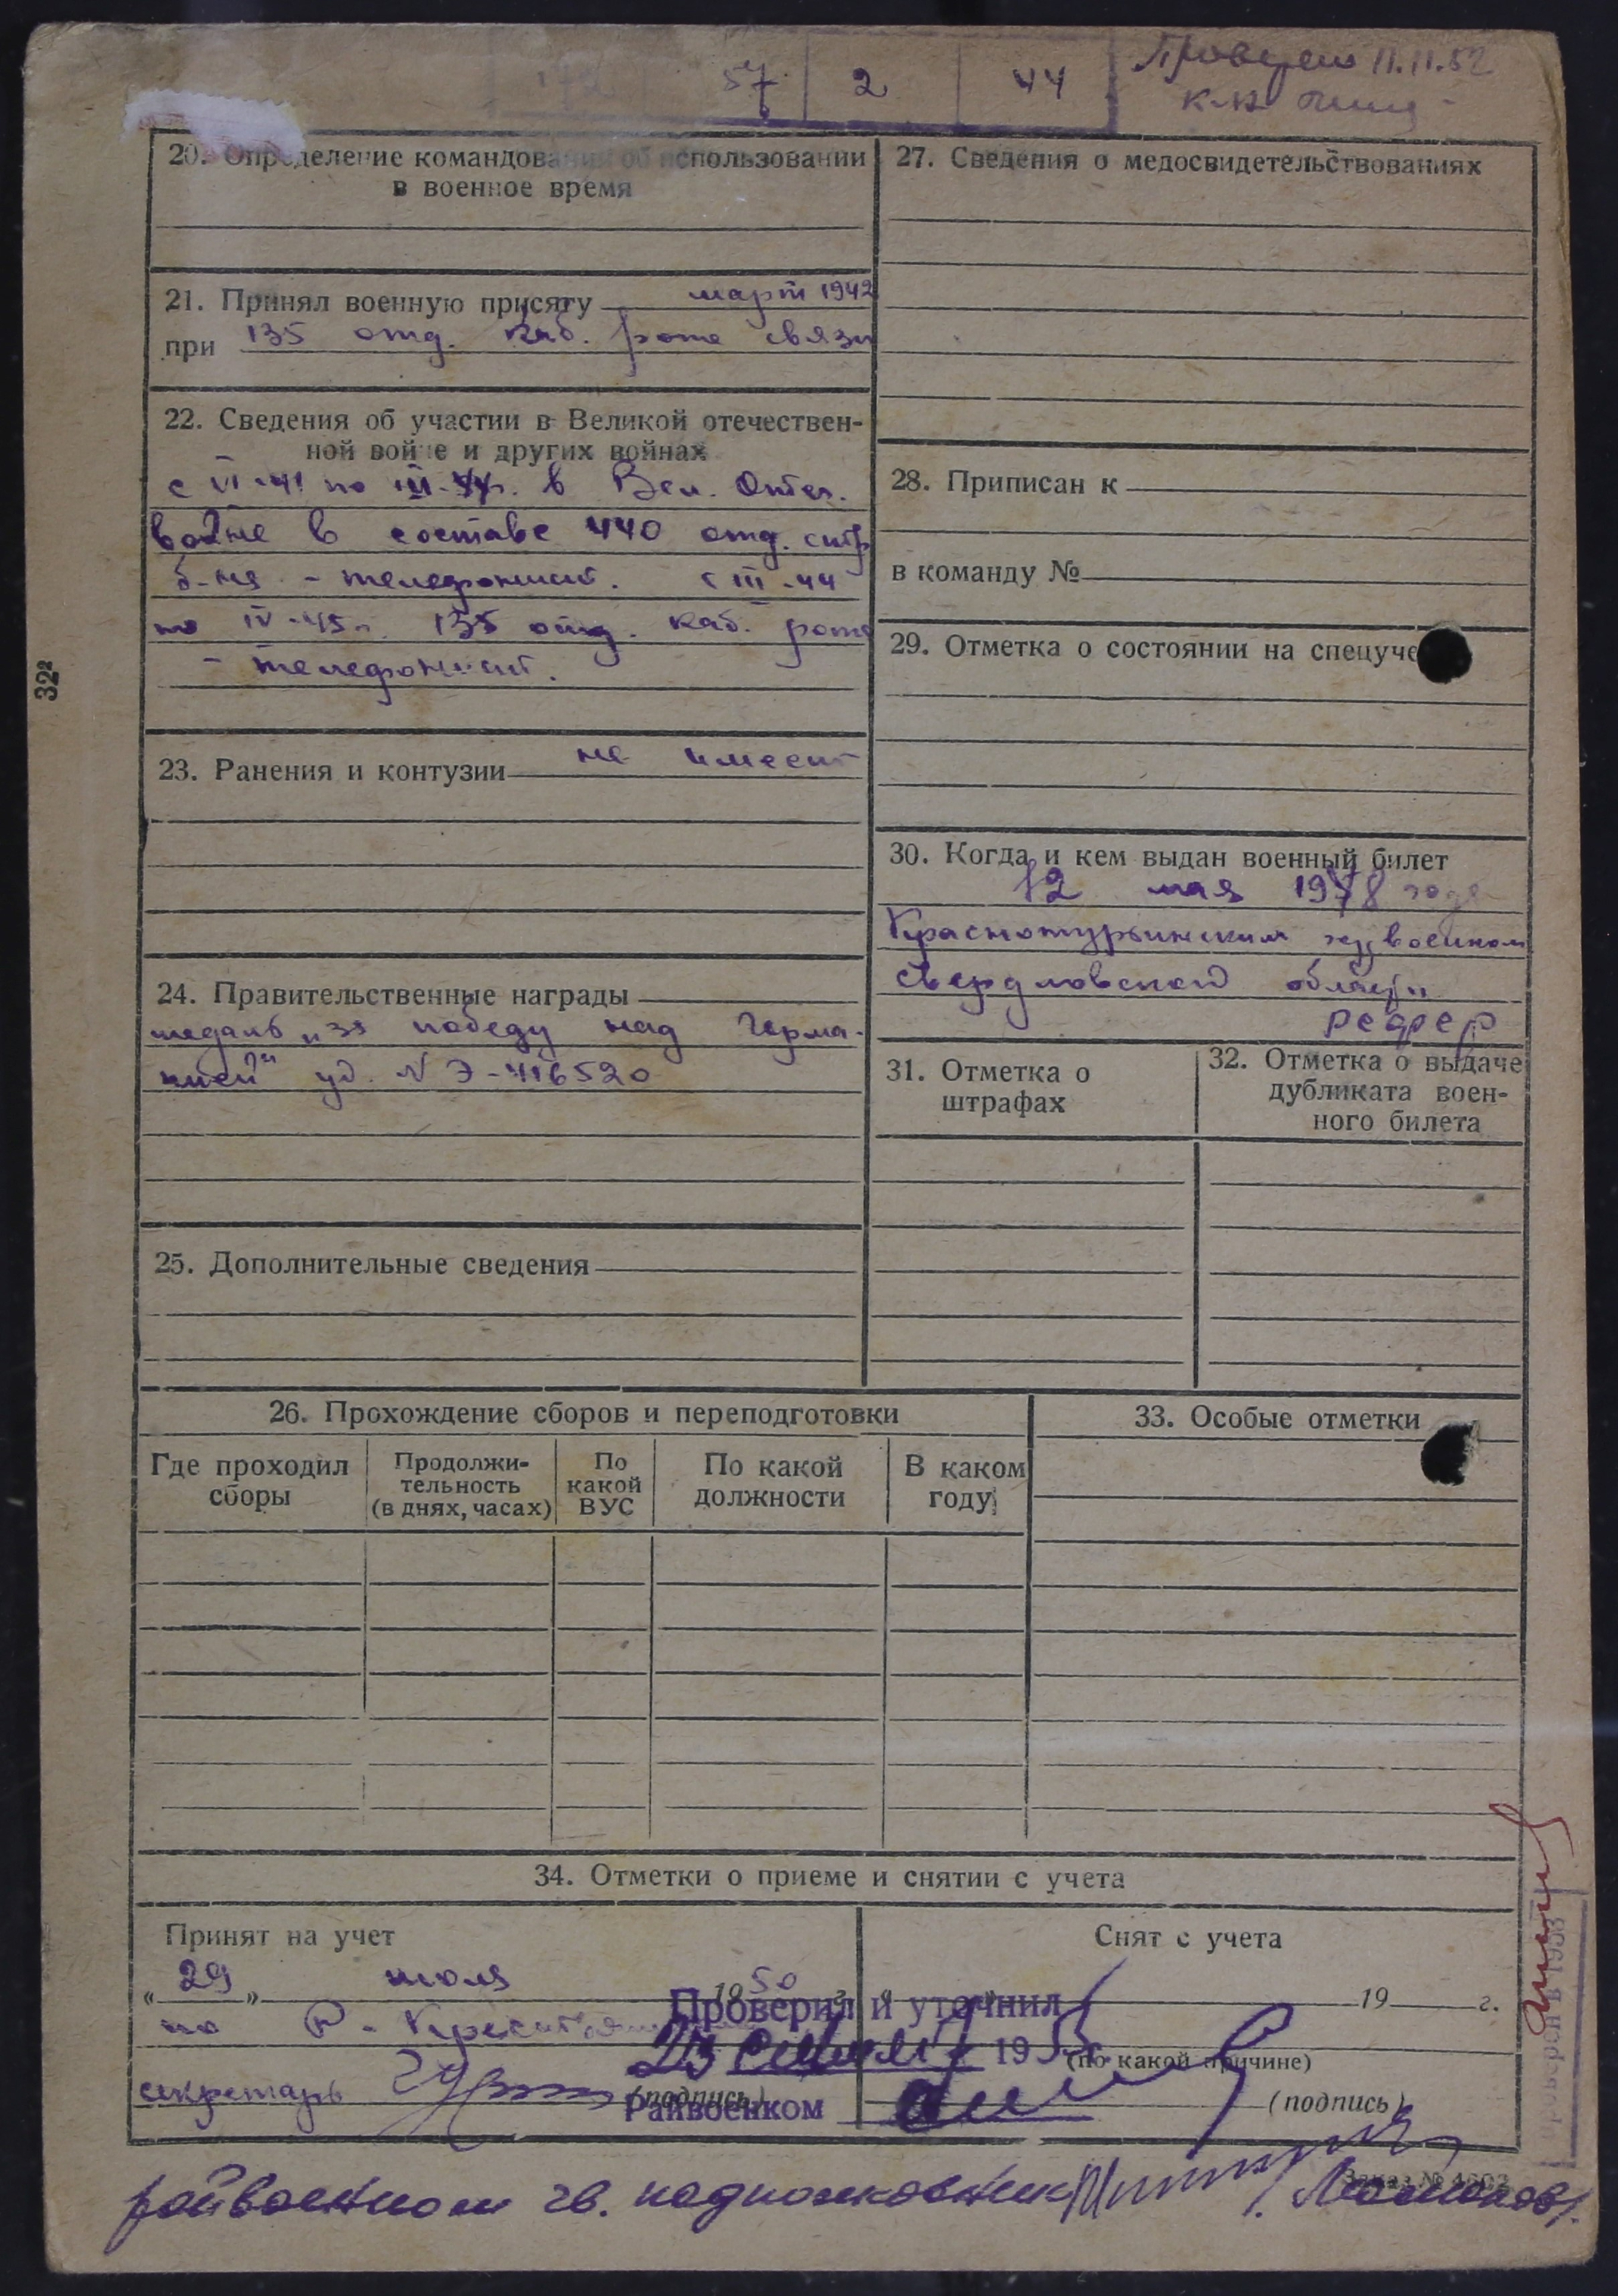 57 2 44
Проверен 11.11.52
20. Определение командования об использовании
в военное время
21. Принял военную присягу март 1942
при 135 отд. каб. роте связи
22. Сведения об участии в Великой отечествен-
ной войне и других войнах
с VI-41 по III-44г. в Вел. Отеч.
войне в составе 440 отд. стр
б-на - телефонист. с III-44
по IV-45г. 135 отд. каб. рота
- телефонист.
23. Ранения и контузии не имеет
24. Правительственные награды
медаль „за победу над Герма-
нией" уд. N Э-416520
25. Дополнительные сведения
27. Сведения о медосвидетельствованиях
28. Приписан к
в команду №
29. Отметка о состоянии на спецуче
30. Когда и кем выдан военный билет
12 мая 1948 года
Краснотурьинским военком
Свердловской области
31. Отметка о
штрафах
32. Отметка о выдаче
дубликата воен-
ного билета
26. Прохождение сборов и переподготовки
Где проходил
сборы
Продолжи-
тельность
(в днях, часах)
По
какой
ВУС
По какой
должности
В каком
году
33. Особые отметки
34. Отметки о приеме и снятии с учета
Принят на учет
« 29 » июля 1950 г.
по
секретарь (подпись)
Снят с учета
19 г.
(по какой причине)
(подпись)
Проверил и уточнил
23 19
Райвоенком
райвоенком гв. подполковник
Заказ №
322